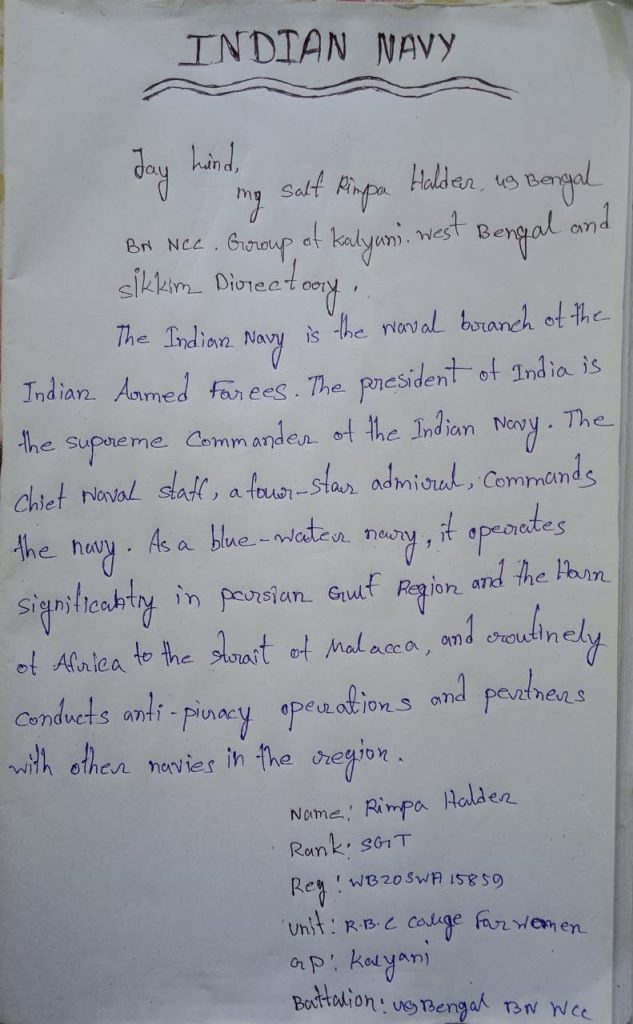 INDIAN NAVY
Jay hind,
my salf Rimpa Halder, 49 Bengal
BN NCC. Group of Kalyani. West Bengal and
sikkim Directory.
The Indian Navy is the naval branch of the
Indian Armed Farees. The president of India is
the supreme Commander of the Indian Navy. The
Chief Naval staff, a four-star admiral, Commands
the navy. As a blue-water navy, it operates
significabtly in persian Gulf Region and the Harn
of Africa to the strait of Malacca, and routinely
conducts anti-piracy operations and pertners
with other navies in the region.
Name: Rimpa Halder
Rank: SGT
Reg: WB20SWA15859
unit: R.B.C Collge Far Women
Gp: Kalyani
Battalion: 49 Bengal BN NCC